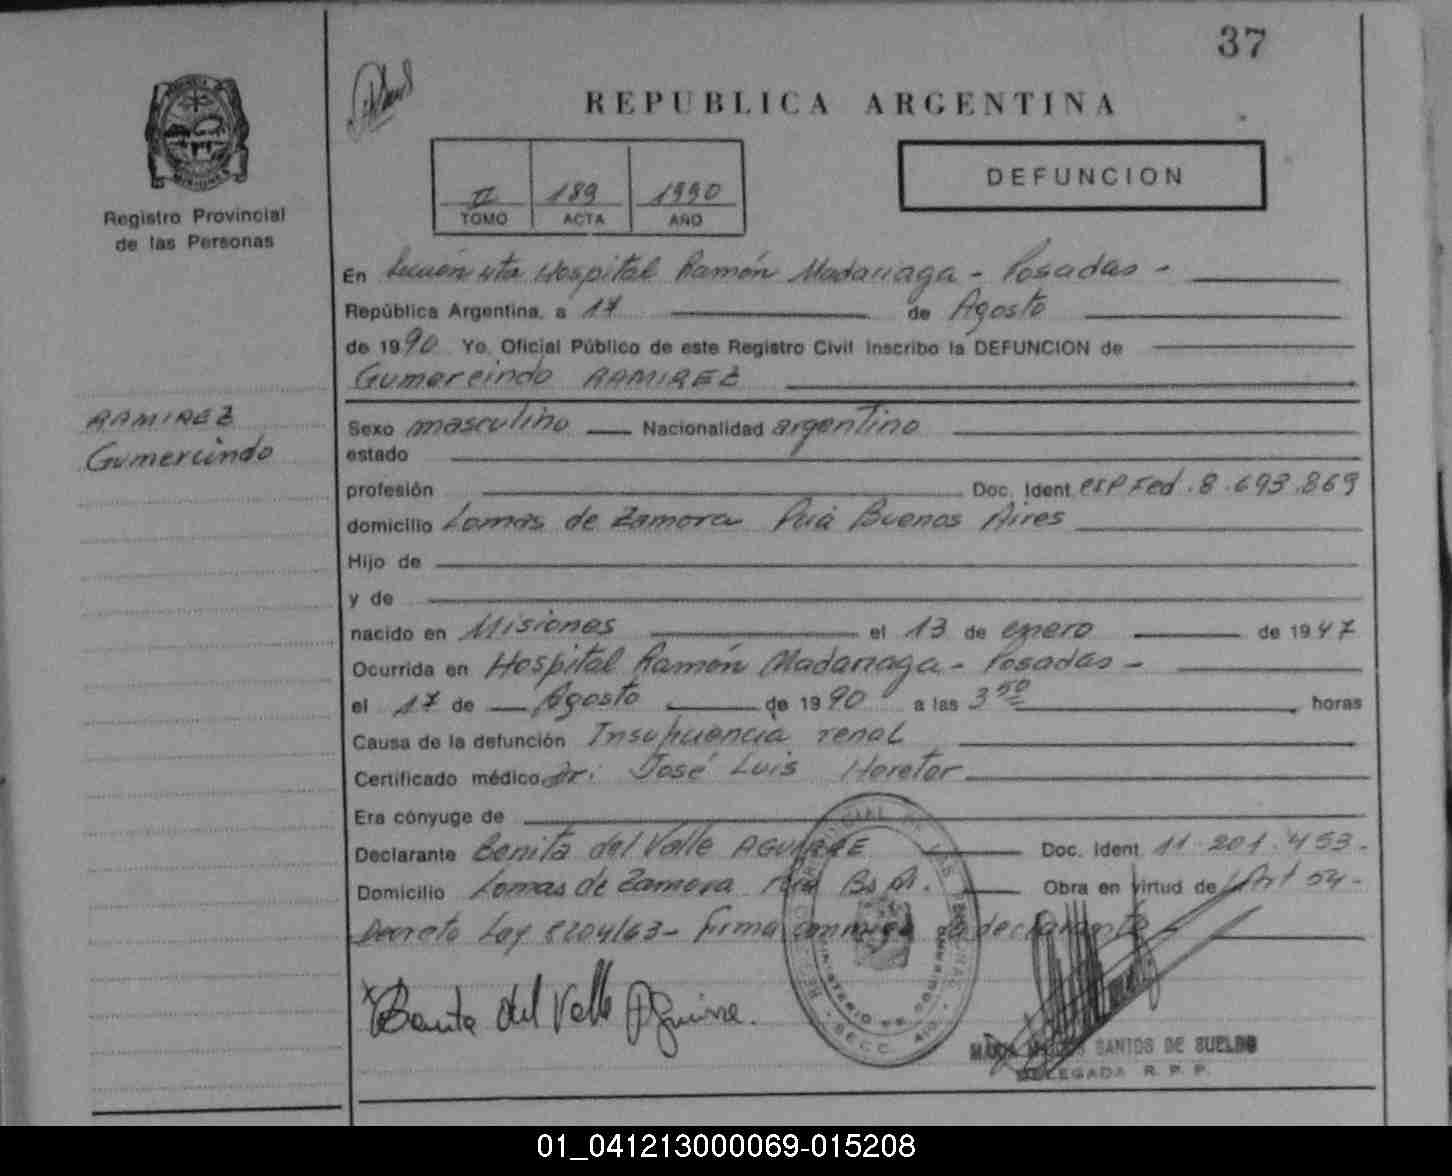 37
REPUBLICA ARGENTINA
DEFUNCION
II 189 1990
TOMO ACTA AÑO
MISIONES
Registro Provincial
de las Personas
En Sección 4ta Hospital Ramón Madariaga - Posadas -
República Argentina, a 17 de Agosto
de 1990 Yo, Oficial Público de este Registro Civil inscribo la DEFUNCION de
Gumercindo RAMIREZ
RAMIREZ
Gumercindo
Sexo masculino Nacionalidad argentino
estado
profesión Doc. Ident. Ced. 8.693.869
domicilio Lomas de Zamora Pcia Buenos Aires
Hijo de
y de
nacido en Misiones el 13 de enero de 1947
Ocurrida en Hospital Ramón Madariaga - Posadas -
el 17 de Agosto de 1990 a las 3 50 horas
Causa de la defunción Insuficiencia renal
Certificado médico Dr: José Luis
Era cónyuge de
Declarante Benita del Valle AGUIRRE Doc. Ident. 11.201.453-
Domicilio Lomas de Zamora Pcia Bs As. Obra en virtud de Art 54-
Decreto Ley 8204/63 - Firma conmigo la declarante -
Benita del Valle Aguirre.
SANTOS DE SUELDO
DELEGADA R. P. P.
01_041213000069-015208